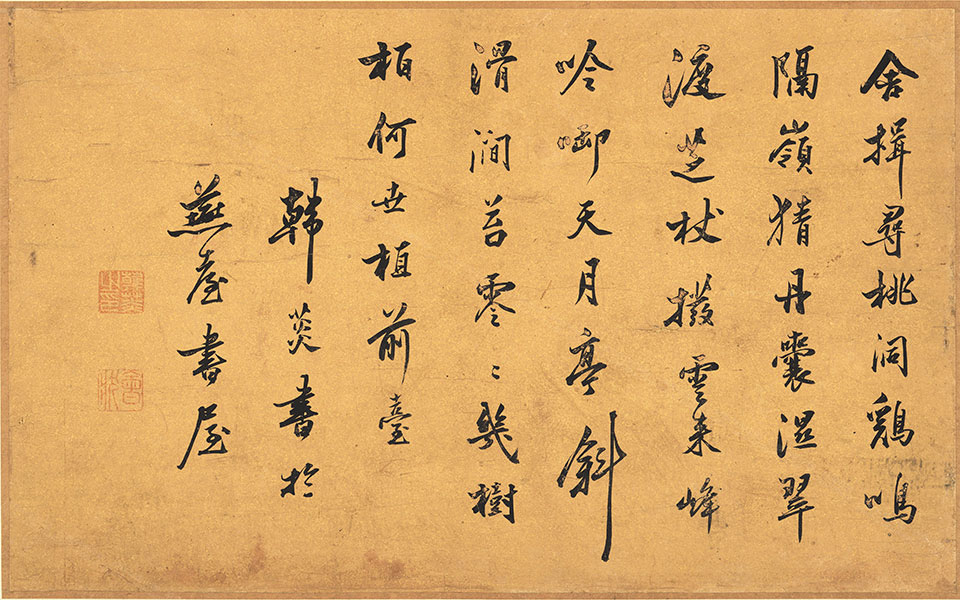 舍揖尋桃洞鷄鳴
隔嶺猜丹囊濕翠
渡芝杖撥雲来峰
吟啣天月亭斜
滑澗苔零〻幾樹
柏何世植前臺
韓菼書於
燕臺書屋